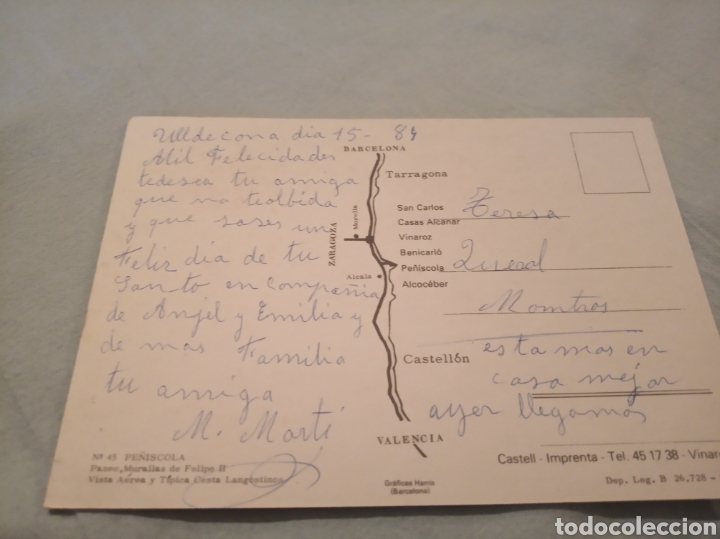 Ulldecona dia 15- 84
Mil Felecidades
tedesea tu amiga
que no teolbida
y que pases un
Feliz dia de tu
Santo en compañia
de Anjel y Emilia y
de mas Familia
tu amiga
M. Marti
Nº 45 PEÑISCOLA
Paseo, Murallas de Felipe II
Vista Aerea y Típica Costa Langostinos
BARCELONA
Tarragona
San Carlos
Casas Alcanar
Vinaroz
Benicarló
Peñiscola
Alcocéber
ZARAGOZA
Morella
Alcala
Castellón
VALENCIA
Gráficas Harris
(Barcelona)
Teresa
Queral
Momtros
esta mos en
casa mejor
ayer llegamos
Castell - Imprenta - Tel. 45 17 38 - Vinar
Dep. Leg. B 26.728 -
todocoleccion
todocoleccion.net